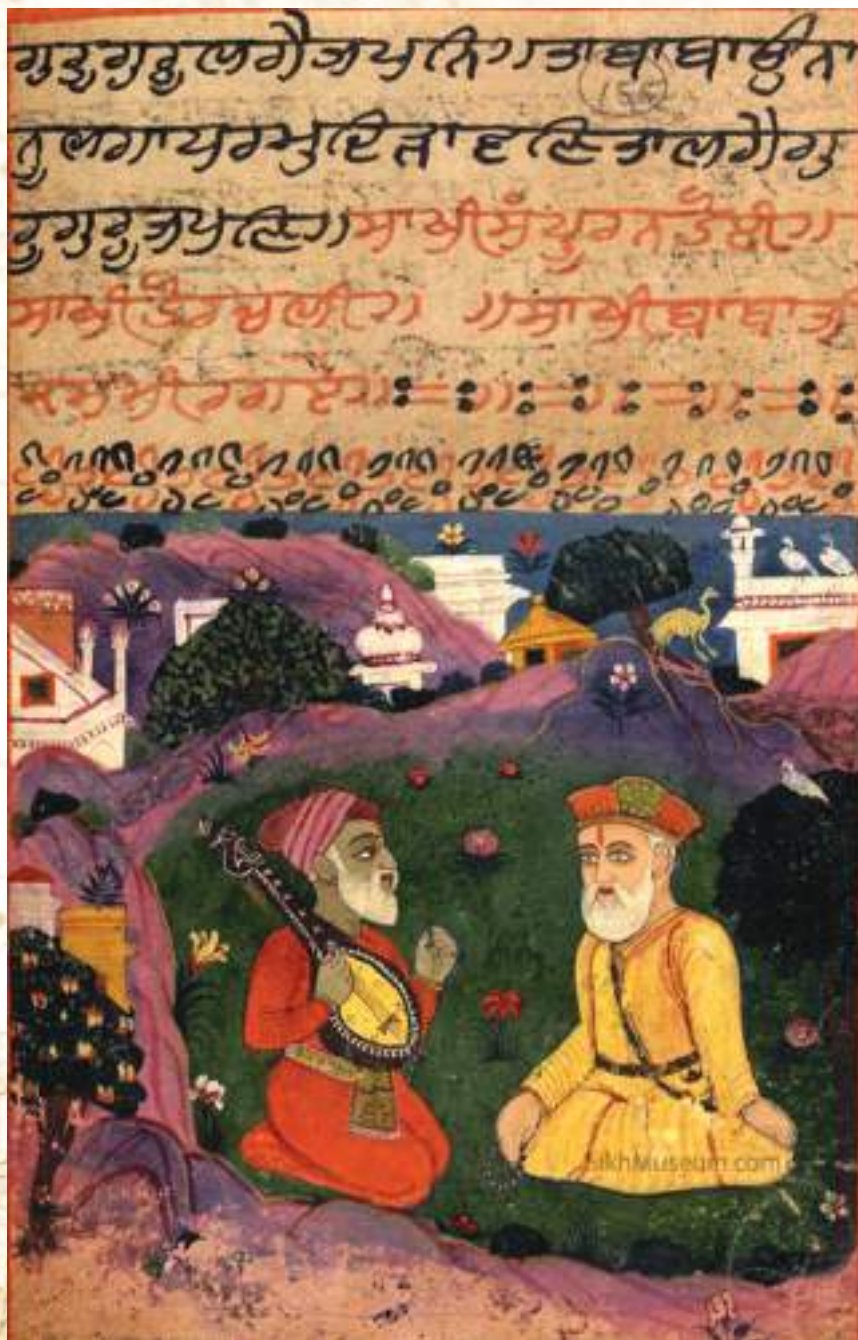 ਗੁਰੁਗੁਰੂਲਗੈਜਪਨਿ।ਤਾਬਾਬਾਉਨਾ
155
ਨੂਲਗਾਪਰਮੁਦਿੜਾਵਣਿਤਾਲਗੈਗੁ
ਰੁਗੁਰੂਜਪਣਿ।ਸਾਖੀਸੰਪੂਰਨਹੋਈ।
ਸਾਖੀਹੋਰਚਲੀ। ।ਸਾਖੀਬਾਬਾਜੀ
SikhMuseum.com